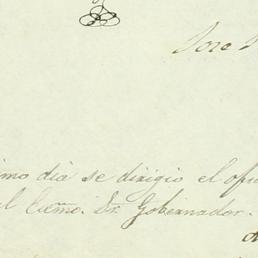 Jose
imo dia se dirigio el ofi
al Exmo. Sr. Gobernador.